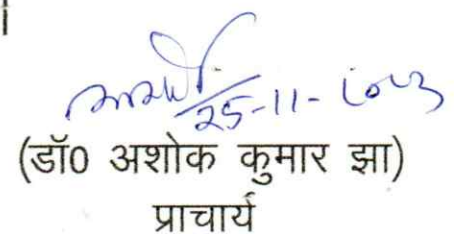 ।
25-11-2013
(डॉ0 अशोक कुमार झा)
प्राचार्य